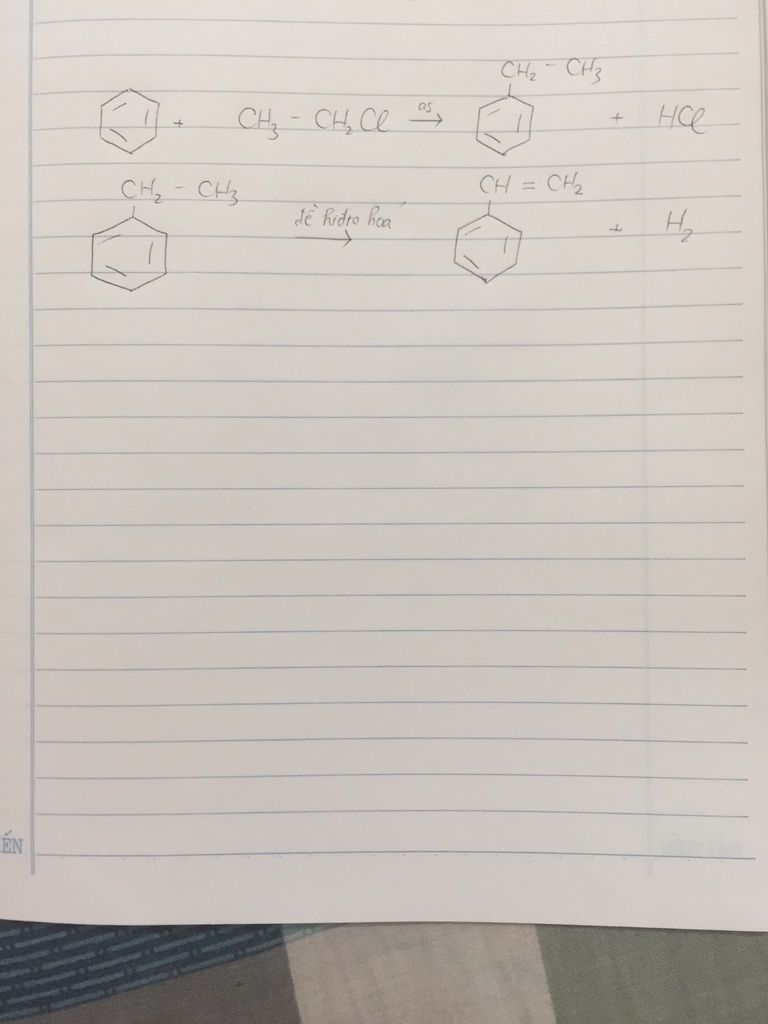 CH₂ - CH₃
+ CH₃ - CH₂Cl as → + HCl
CH₂ - CH₃ CH = CH₂
đề hiđro hoá → + H₂
ẾN